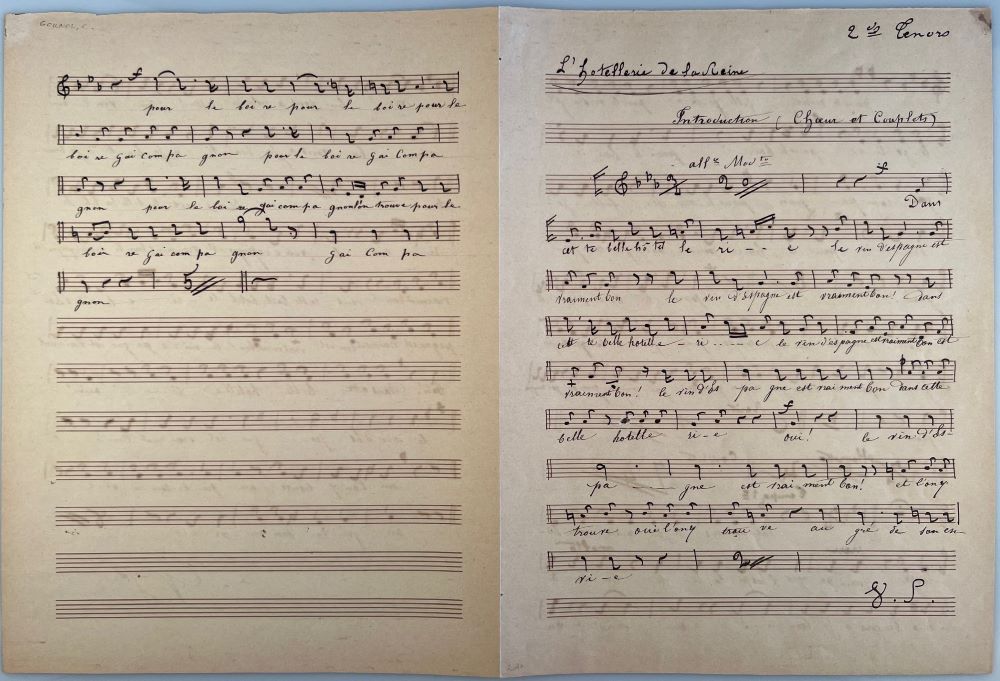 pour le boi re pour le boi re pour le
boi re gai com pa gnon pour le boi re gai Compa
gnon pour le boi re gai com pa gnon l'on trouve pour le
boir re gai com pa gnon gai Com pa
5
gnon
2 ds Tenors
L'hotellerie de la Reine
Introduction (Chœur et Couplets)
all° Modto
2 20 f
Dans
cet te belle hô tel le ri - - e le vin d'espagne est
vraiment bon le vin d'Espagne est vraiment bon! dans
cett te belle hotelle - ri - - - - e le vin d'espagne est vraiment bon est
vraiment bon! le vin d'Es pa gne est vrai ment bon dans cette
f
belle hotelle ri - e oui! le vin d'Es-
pa gne est vrai ment bon! et l'ony
trouve oui l'ony trou ve au gré de son en-
2
vi - e
V. S.